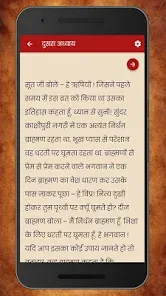 दुसरा अध्याय
सूत जी बोले – हे ऋषियों ! जिसने पहले
समय में इस व्रत को किया था उसका
इतिहास कहता हूँ, ध्यान से सुनो! सुंदर
काशीपुरी नगरी में एक अत्यंत निर्धन
ब्राह्मण रहता था. भूख प्यास से परेशान
वह धरती पर घूमता रहता था. ब्राह्मणों से
प्रेम से प्रेम करने वाले भगवान ने एक
दिन ब्राह्मण का वेश धारण कर उसके
पास जाकर पूछा – हे विप्र! नित्य दुखी
होकर तुम पृथ्वी पर क्यूँ घूमते हो? दीन
ब्राह्मण बोला – मैं निर्धन ब्राह्मण हूँ. भिक्षा
के लिए धरती पर घूमता हूँ. हे भगवान !
यदि आप इसका कोई उपाय जानते हो तो